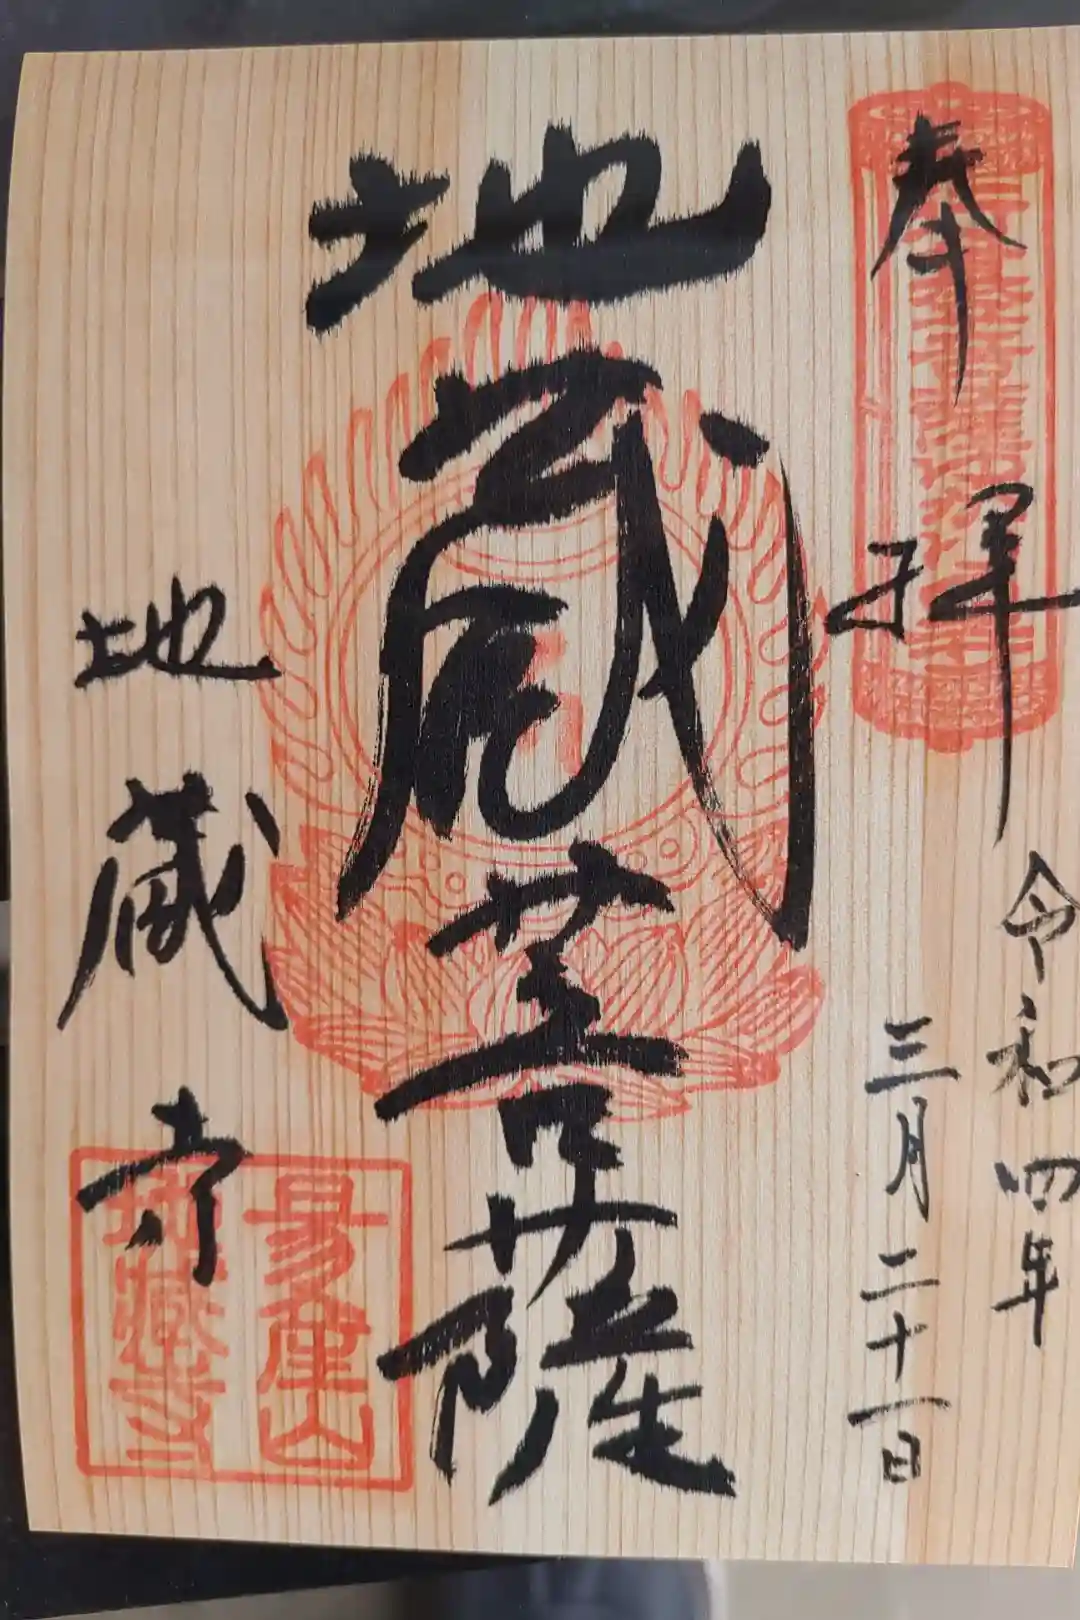 奉拝
令和四年
三月二十一日
地蔵菩薩
地蔵寺
地蔵寺